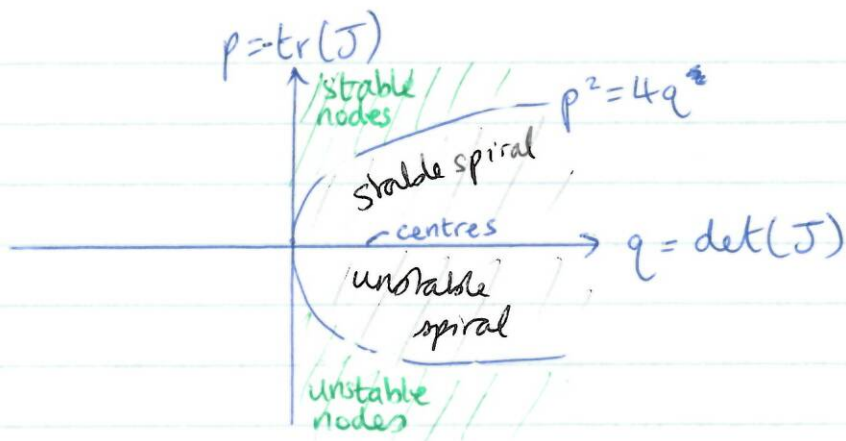 p=-tr(J)
stable
nodes
p²=4q
stable spiral
centres
q = det(J)
unstable
spiral
unstable
nodes